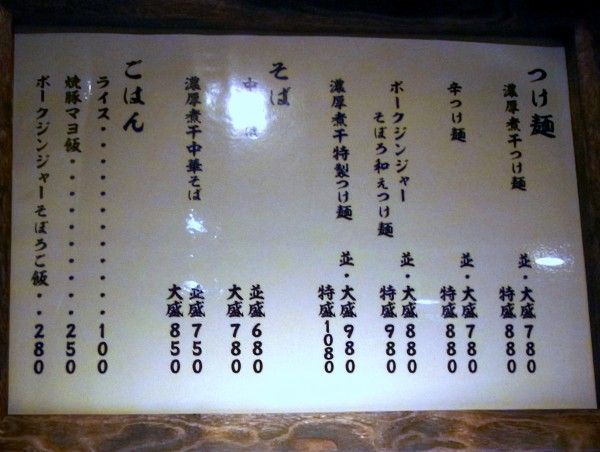 つけ麺
濃厚煮干つけ麺
並・大盛 780
特盛 880
辛つけ麺
並・大盛 780
特盛 880
ポークジンジャー
そぼろ和えつけ麺
並・大盛 880
特盛 980
濃厚煮干特製つけ麺
並・大盛 980
特盛 1080
そば
中 ば
並盛 680
大盛 780
濃厚煮干中華そば
並盛 750
大盛 850
ごはん
ライス・・・・・・・・・・・・100
焼豚マヨ飯・・・・・・・・・・250
ポークジンジャーそぼろご飯・・280